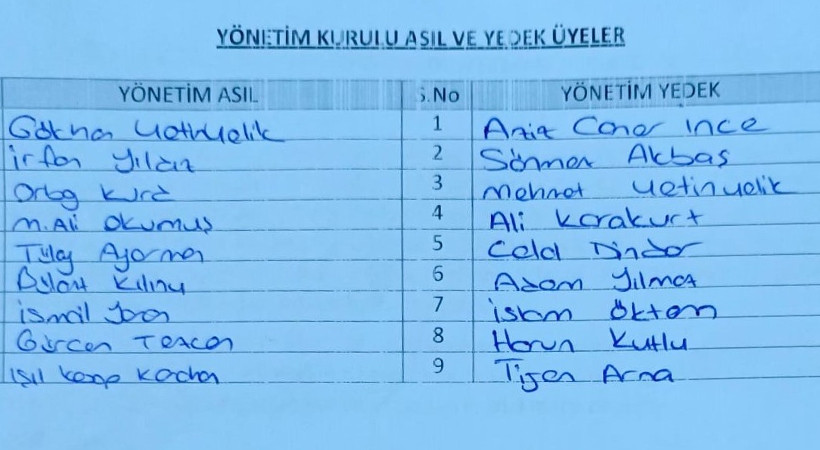 YÖNETİM KURULU ASIL VE YEDEK ÜYELER
YÖNETİM ASIL S.No YÖNETİM YEDEK
Gökhan 1 Aziz Caner ince
irfan Yıldız 2 Sönmez Akbaş
Kurd 3 Mehmet
M. Ali Okumuş 4 Ali Karakurt
Tülay 5 Celal Dindar
Bülent Kılınç 6 Adem Yılmaz
ismail 7 islam Öktem
Gürcan Tezcan 8 Harun Kutlu
Işıl 9 Tijen Arna